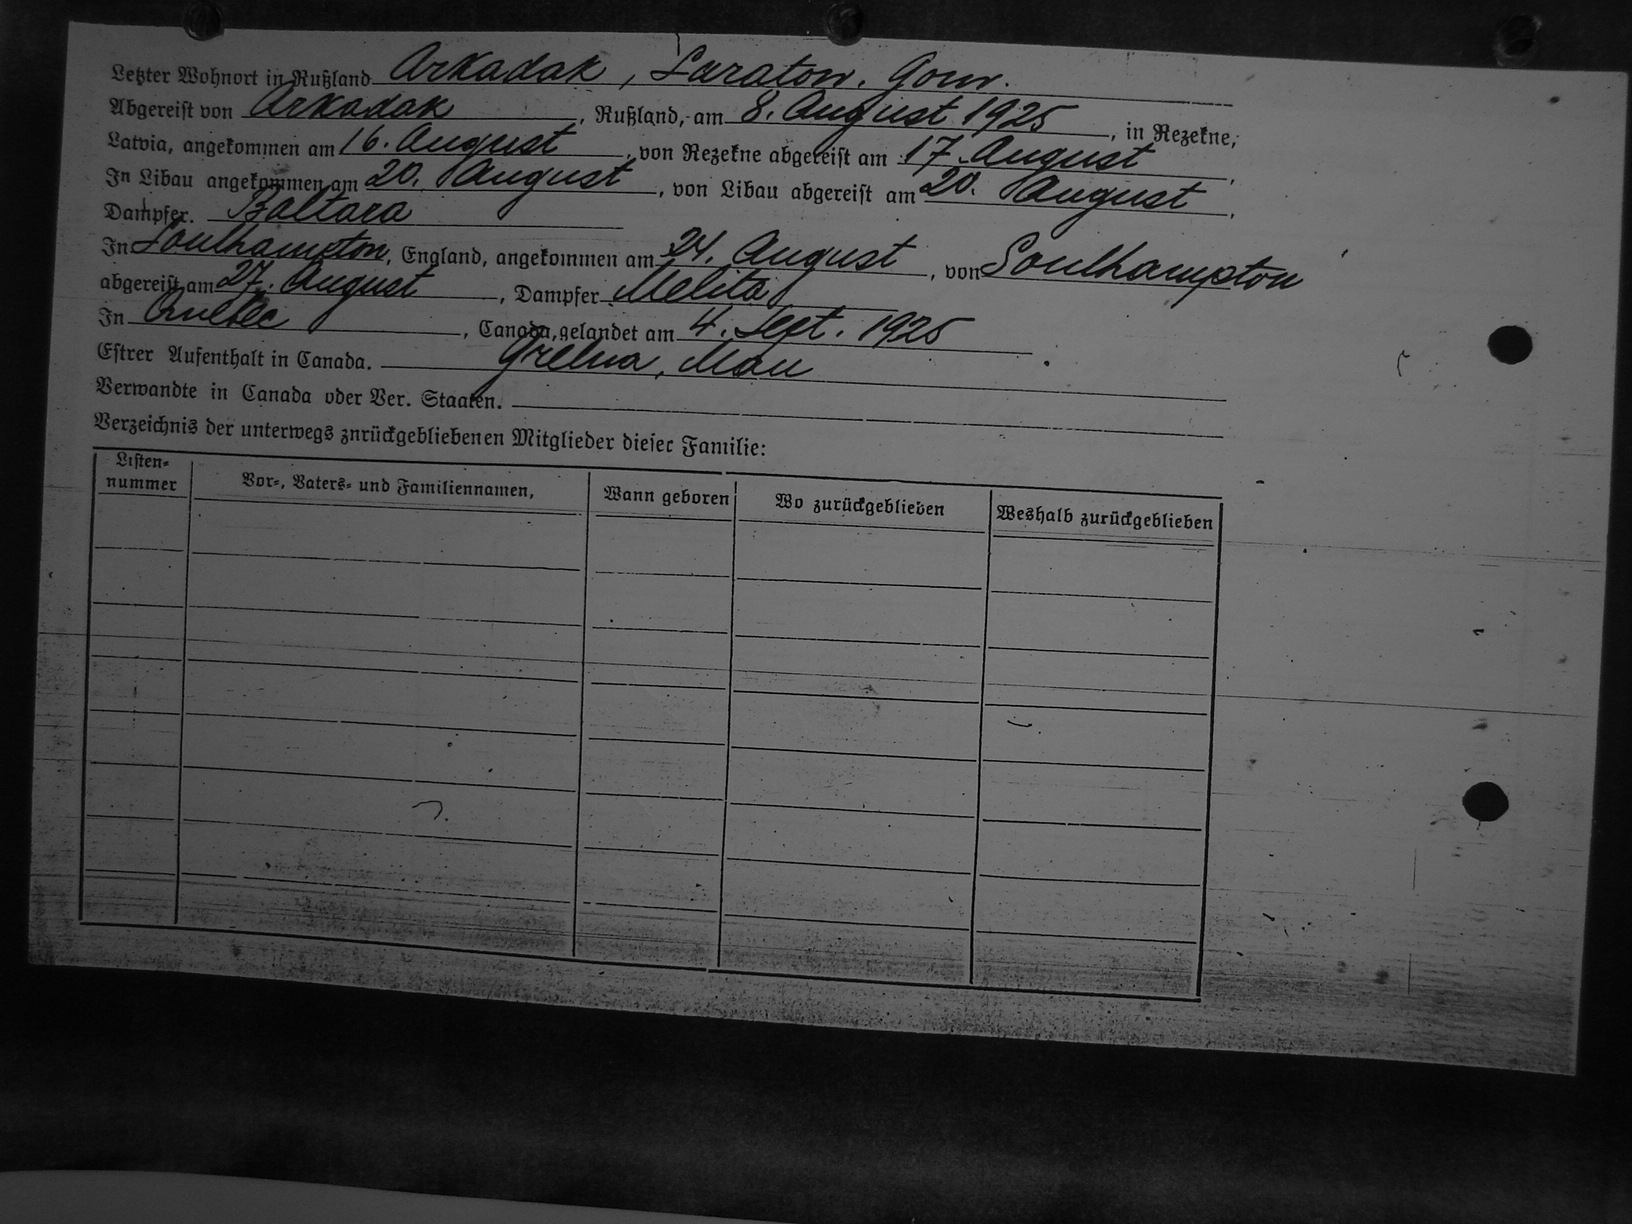 Letzter Wohnort in Rußland Arkadak, Saratow. Gouv.
Abgereist von Arkadak, Rußland, am 8. August 1925, in Rezekne,
Latvia, angekommen am 16. August, von Rezekne abgereist am 17. August,
In Libau angekommen am 20. August, von Libau abgereist am 20. August,
Dampfer. Baltara
In Southampton, England, angekommen am 24. August, von Southampton
abgereist am 27. August, Dampfer Melita
In Quebec, Canada, gelandet am 4. Sept. 1925
Estrer Aufenthalt in Canada. Gretna, Man
Verwandte in Canada oder Ver. Staaten.
Verzeichnis der unterwegs znrückgebliebenen Mitglieder dieser Familie:
Listen-
nummer Vor-, Vaters- und Familiennamen, Wann geboren Wo zurückgeblieben Weshalb zurückgeblieben